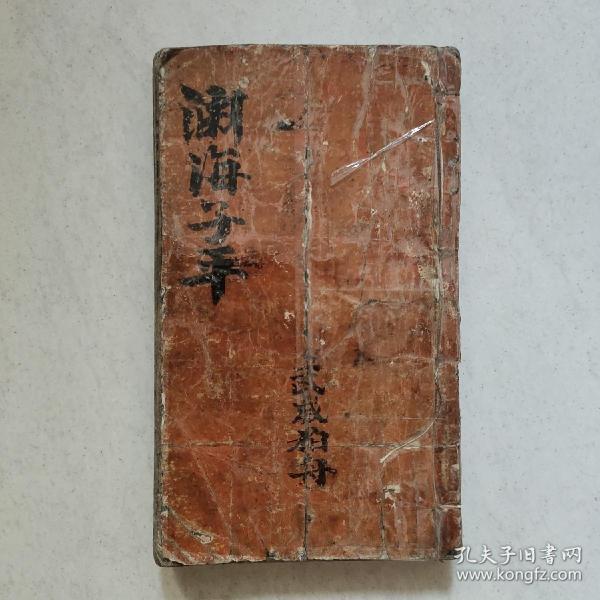 渊海子平
武威
孔夫子旧書网
www.kongfz.com